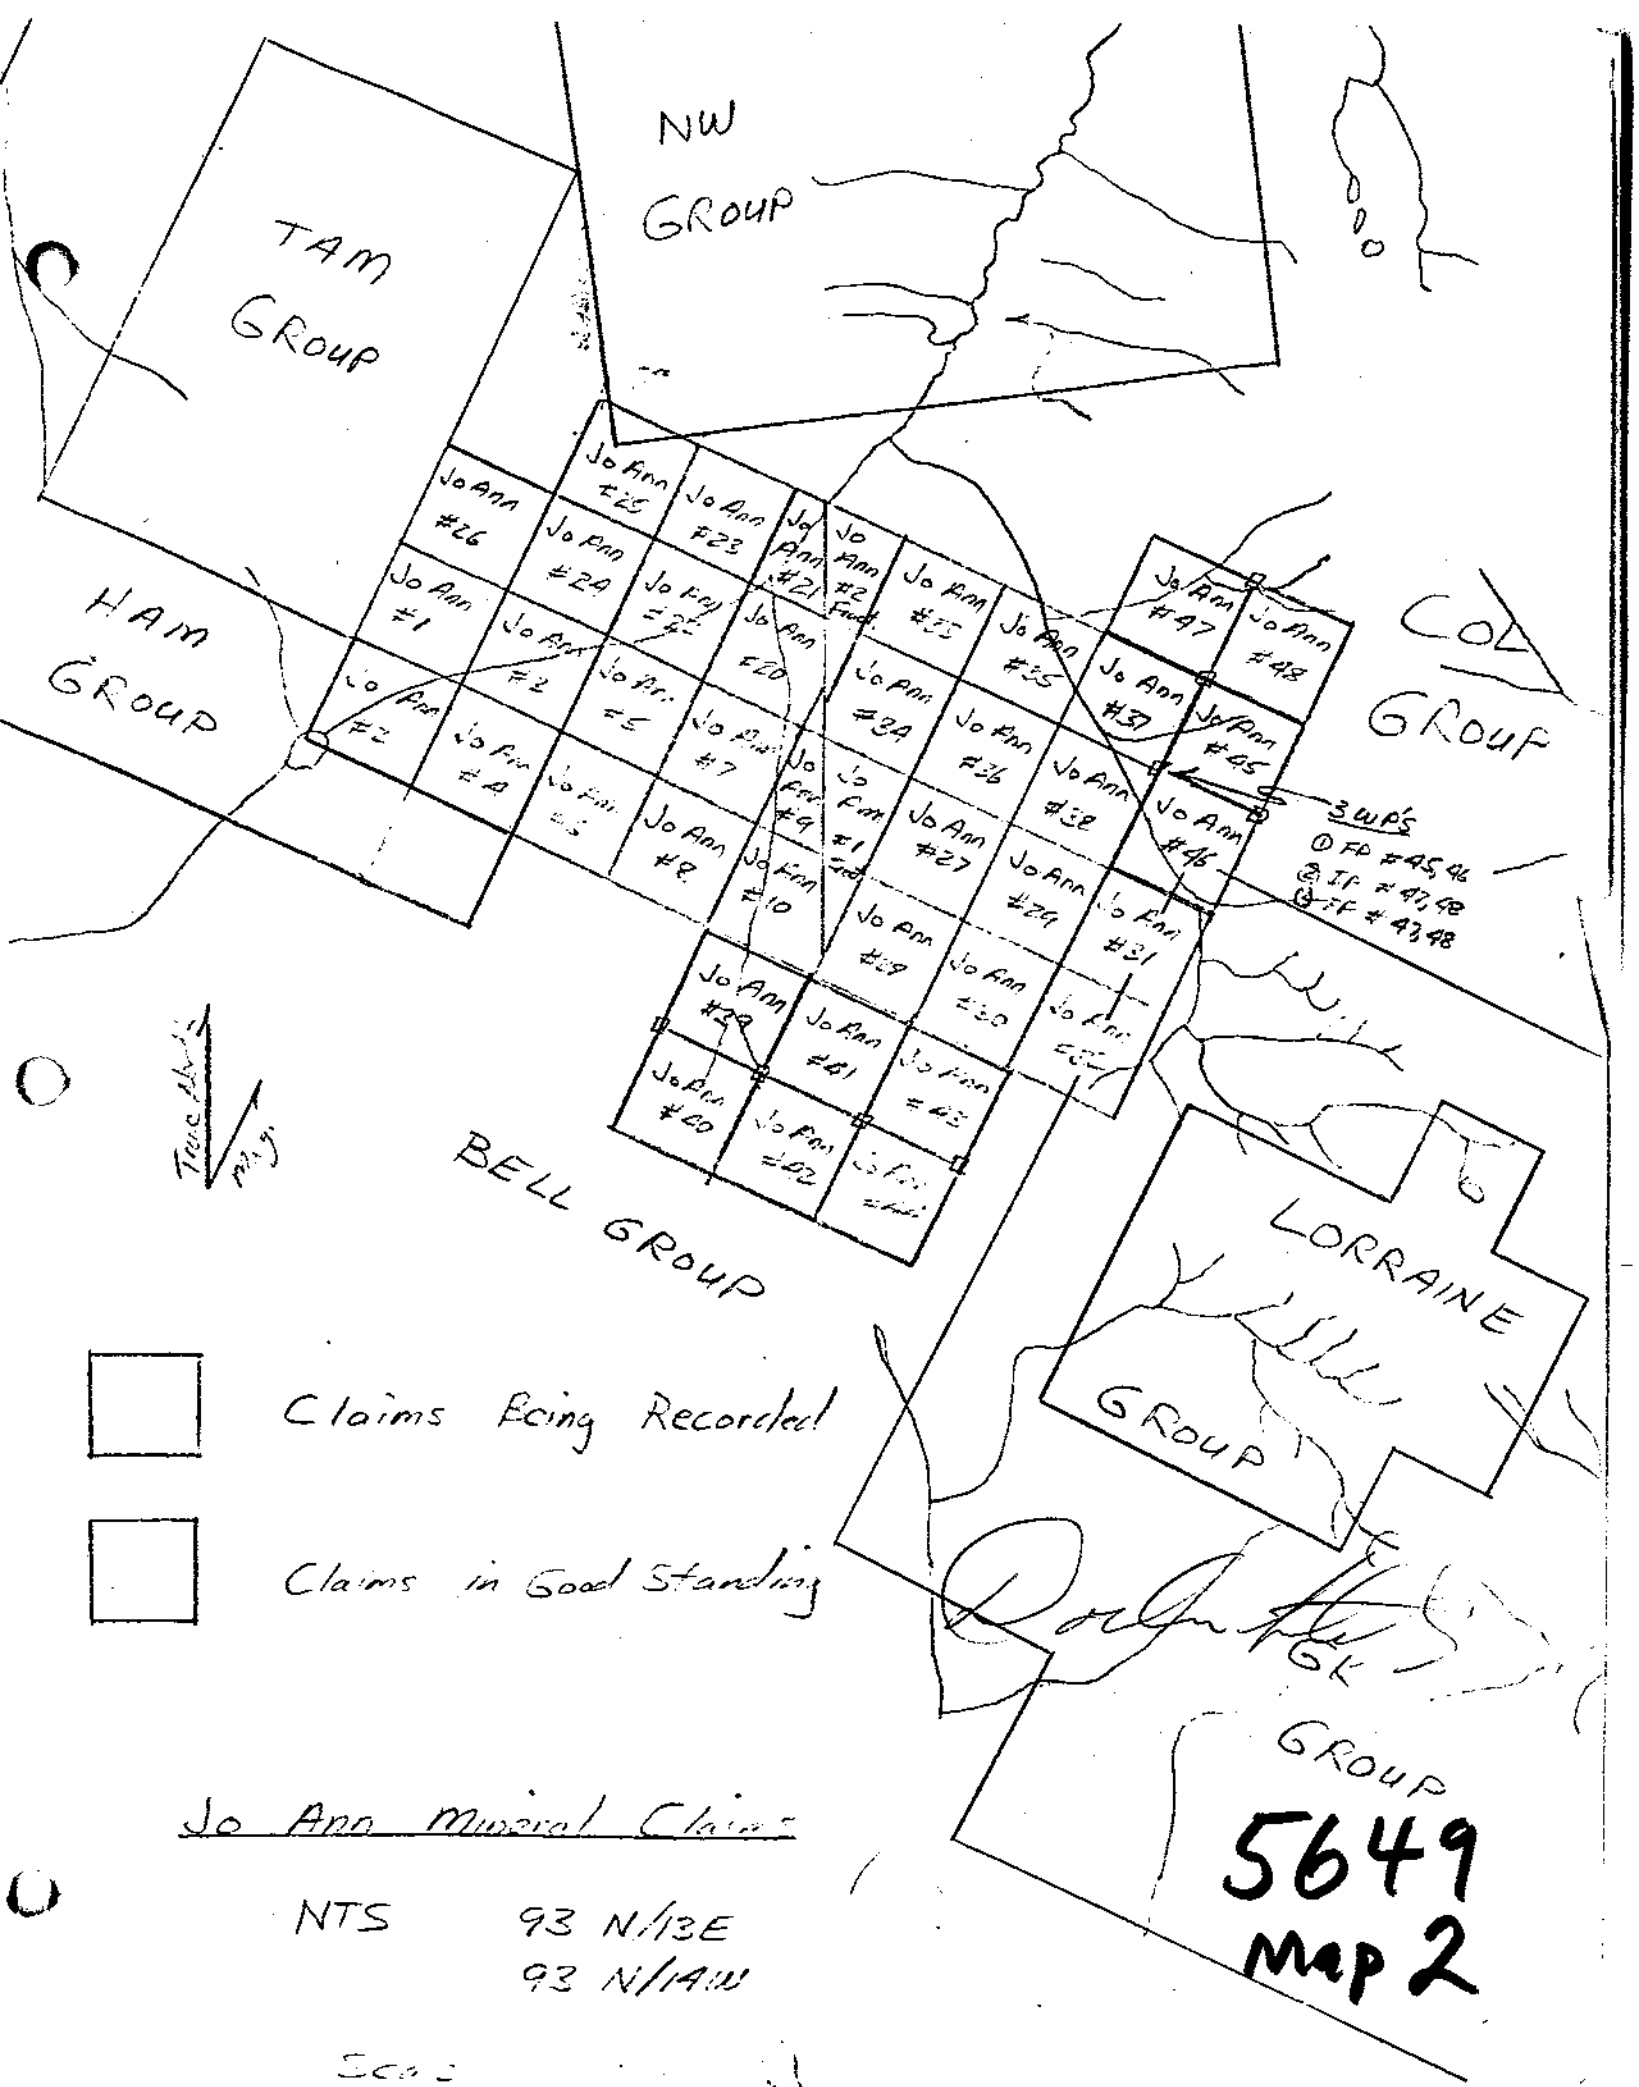 NW
GROUP
TAM
GROUP
HAM
GROUP
COL
GROUP
Jo Ann
#25
Jo Ann
#23
Jo
Ann
#21
Jo
Ann
#2
Fract.
Jo Ann
#33
Jo Ann
#35
Jo Ann
#47
Jo Ann
#48
Jo Ann
#26
Jo Ann
#24
Jo Ann
#22
Jo Ann
#20
Jo Ann
#34
Jo Ann
#36
Jo Ann
#37
Jo Ann
#45
Jo Ann
#1
Jo Ann
Jo Ann
#5
Jo Ann
#7
Jo
Ann
#9
Jo
Ann
#1
Jo Ann
#27
Jo Ann
#38
Jo Ann
#46
Jo
Ann
#2
Jo Ann
#4
Jo Ann
Jo Ann
#8
Jo Ann
#10
Jo Ann
Jo Ann
#29
Jo Ann
#31
Jo Ann
#30
Jo Ann
Jo Ann
#39
Jo Ann
#41
Jo Ann
#43
Jo Ann
#40
Jo Ann
#42
Jo Ann
3 WP's
① FP #45,46
② IP #47,48
#47,48
True North
Mag.
BELL GROUP
LORRAINE
GROUP
Claims Being Recorded
Claims in Good Standing
GK
GROUP
Jo Ann Mineral Claims
NTS 93 N/13E
93 N/14W
5649
Map 2